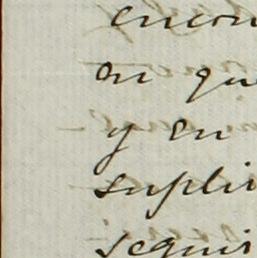 encon
en que
y en
suplic
seguir